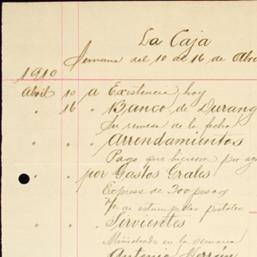 La Caja
Semana del 10 de 16 de Abri
1910
Abril 10 a Existencia hoy
" 16 " Banco de Durang
Su remesa de la fecha
" " Arrendamientos
Pago que hicieron por
" " por Gastos Grales
Express de 300 pesos
" " Sirvientes
Ministrado en la semana
Antonio Herrán